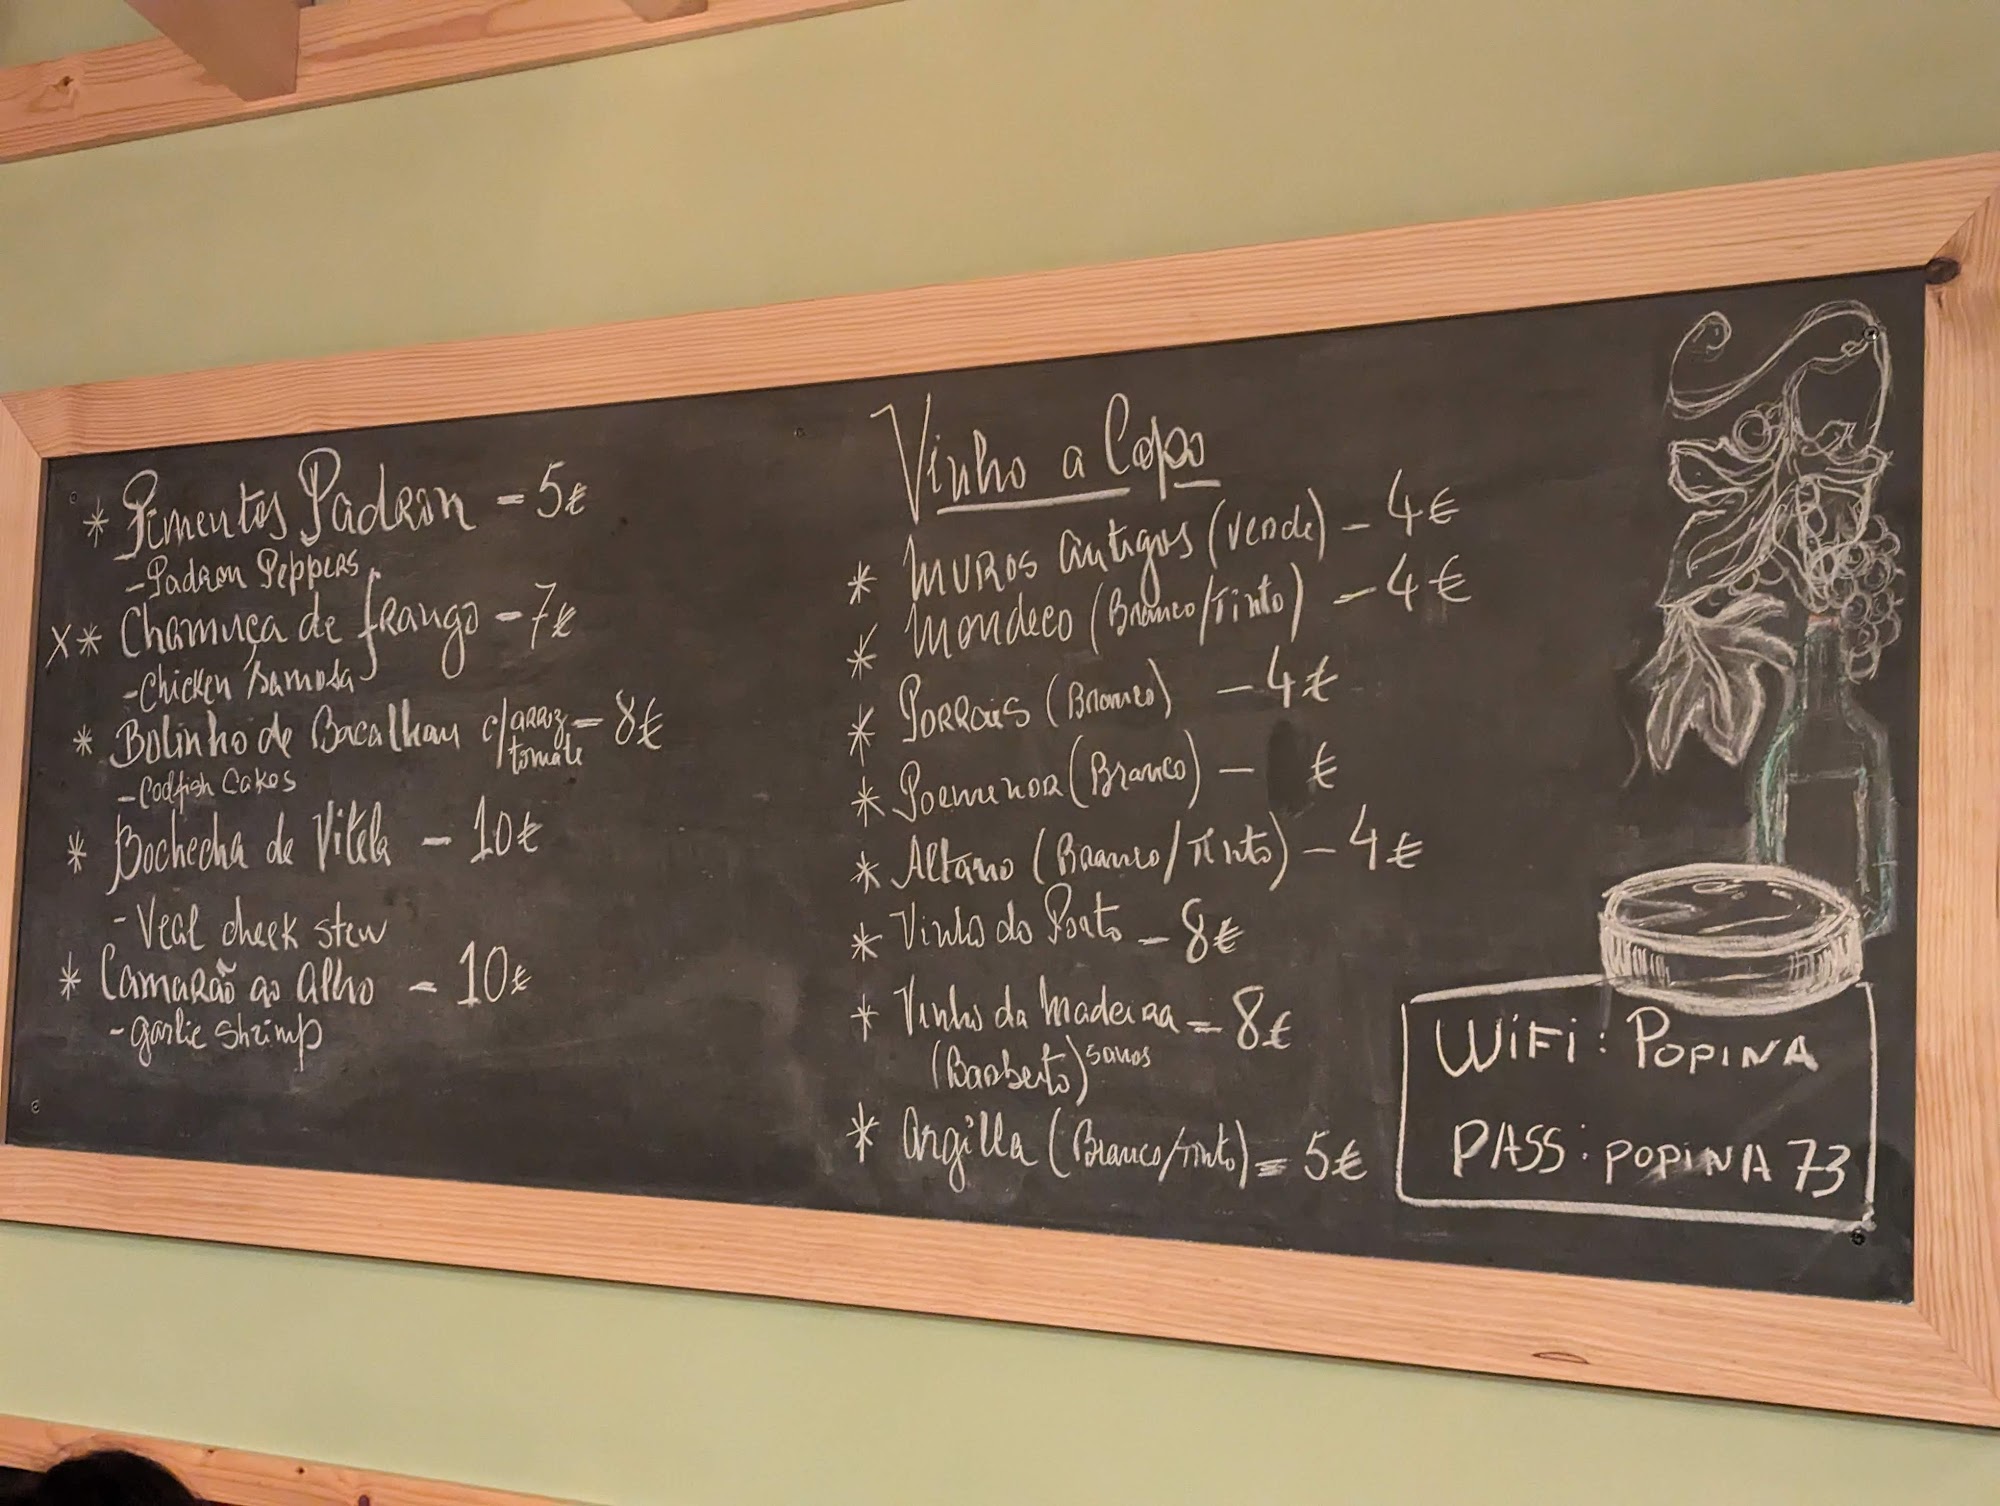 * Pimentos Padron - 5€
- Padron Peppers
X * Chamuça de frango - 7€
- Chicken Samosa
* Bolinho de Bacalhau c/ arroz tomate - 8€
- Codfish Cakes
* Bochecha de Vitela - 10€
- Veal cheek stew
* Camarão ao alho - 10€
- garlic shrimp
Vinho a Copo
* Muros antigos (Verde) - 4€
* Mondeco (Branco/Tinto) - 4€
* Porrais (Branco) - 4€
* Poemenor (Branco) - €
* Altano (Branco/Tinto) - 4€
* Vinho do Porto - 8€
* Vinho da Madeira - 8€
(Barbeito) 5 anos
* Argilla (Branco/tinto) = 5€
WiFi: POPINA
PASS: POPINA 73